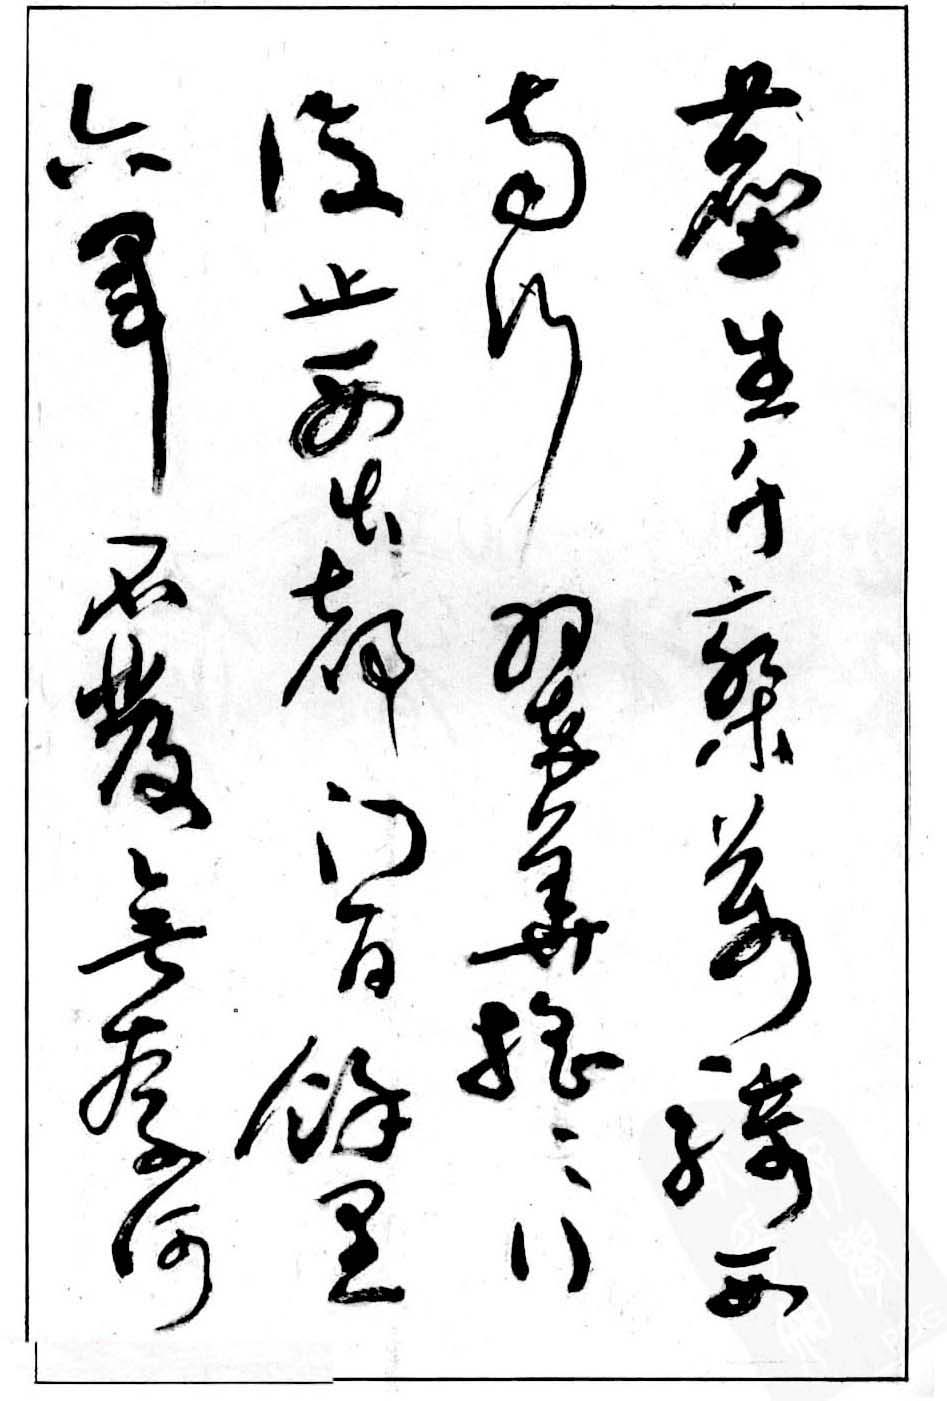 塵生千乘萬騎西
南行翠華搖〻行
復止西出都門百餘里
六軍不發無奈何